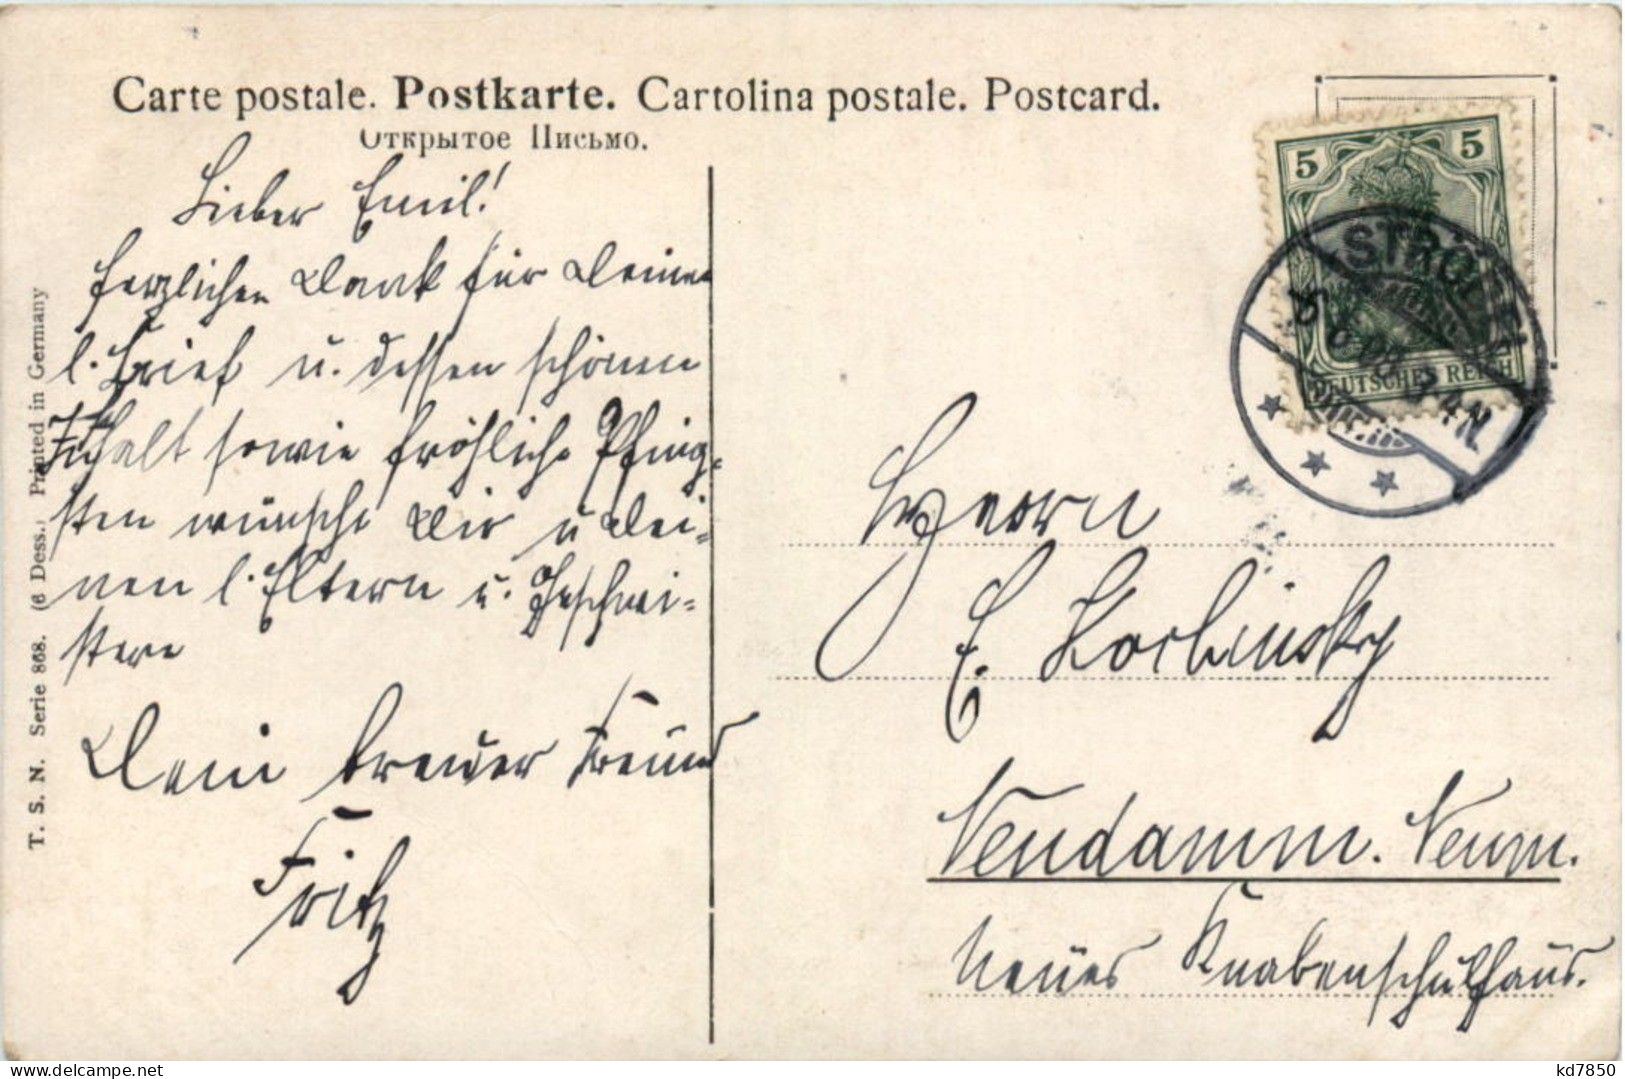 Carte postale. Postkarte. Cartolina postale. Postcard.
Открытое Письмо.
Lieber Emil!
herzlichen Dank für Deinen
l. Brief u. dessen schönen
Inhalt sowie fröhliche Pfing-
sten wünscht Dir u Dei-
nen l. Eltern u. Geschwi-
stern
Dein treuer Freund
Fritz
T. S. N. Serie 868. (6 Dess.) Printed in Germany
5 5
DEUTSCHES REICH
Herrn
E.
Neudamm. Neum.
Neues Knabenschulhaus.
kd7850